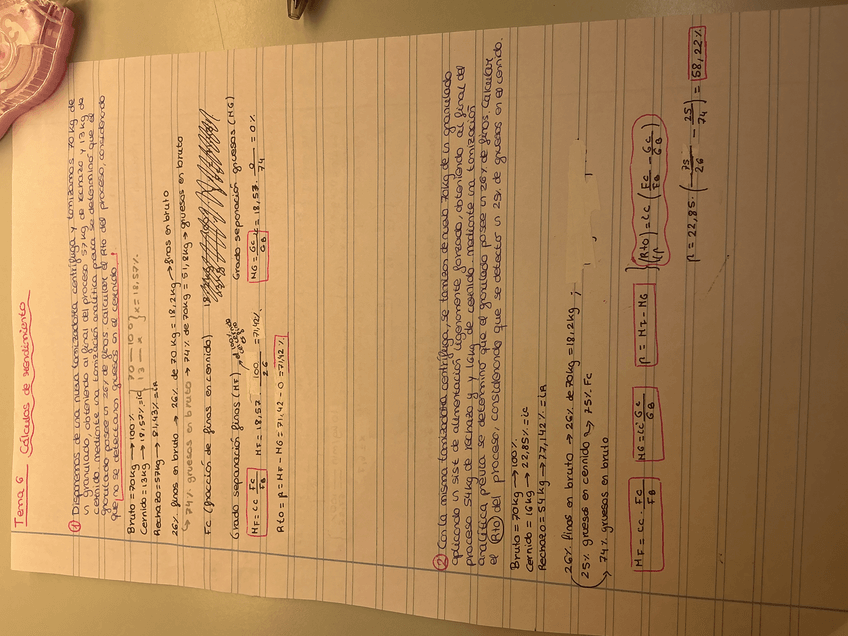 Tema 6 Cálculos de rendimiento
① Disponemos de una nueva tamizadora centrífuga y tamizamos 70 kg de
un granulado, obteniendo al final del proceso 57 kg de rechazo y 13 kg de
cernido. Mediante una tamización analítica previa se determinó que el
granulado posee un 26% de finos. Calcular el Rto del proceso, considerando
que no se detectaron gruesos en el cernido.
Bruto = 70 kg → 100%
Cernido = 13 kg → 18,57% = ic } 70 — 100 } x = 18,57%
Rechazo = 57 kg → 81,43% = iR } 13 — x
26% finos en bruto → 26% de 70 kg = 18,2 kg → finos en bruto
↳ 74% gruesos en bruto → 74% de 70 kg = 51,8 kg → gruesos en bruto
Fc (fracción de finos en cernido)
Grado separación finos (HF) Grado separación gruesos (HG)
HF = ic · Fc/FB HF = 18,57 · 100/26 = 71,42% HG = Gc/GB · ic = 18,57 · 0/74 = 0%
Rto = β = HF - HG = 71,42 - 0 = 71,42%
② Con la misma tamizadora centrífuga, se tamizan de nuevo 70 kg de un granulado
aplicando un sist de alimentación ligeramente forzado, obteniendo al final del
proceso 54 kg de rechazo y 16 kg de cernido. Mediante una tamización
analítica previa se determinó que el granulado posee un 26% de finos. Calcular
el Rto del proceso, considerando que se detectó un 25% de gruesos en el cernido.
Bruto = 70 kg → 100%
Cernido = 16 kg → 22,85% = ic
Rechazo = 54 kg → 77,142% = iR
26% finos en bruto → 26% de 70 kg = 18,2 kg ;
25% gruesos en cernido → 75% Fc
74% gruesos en bruto
HF = ic · Fc/FB HG = ic · Gc/GB β = HF - HG (Rto) β = ic (Fc/FB - Gc/GB)
β = 22,85 · (75/26 - 25/74) = 58,22%